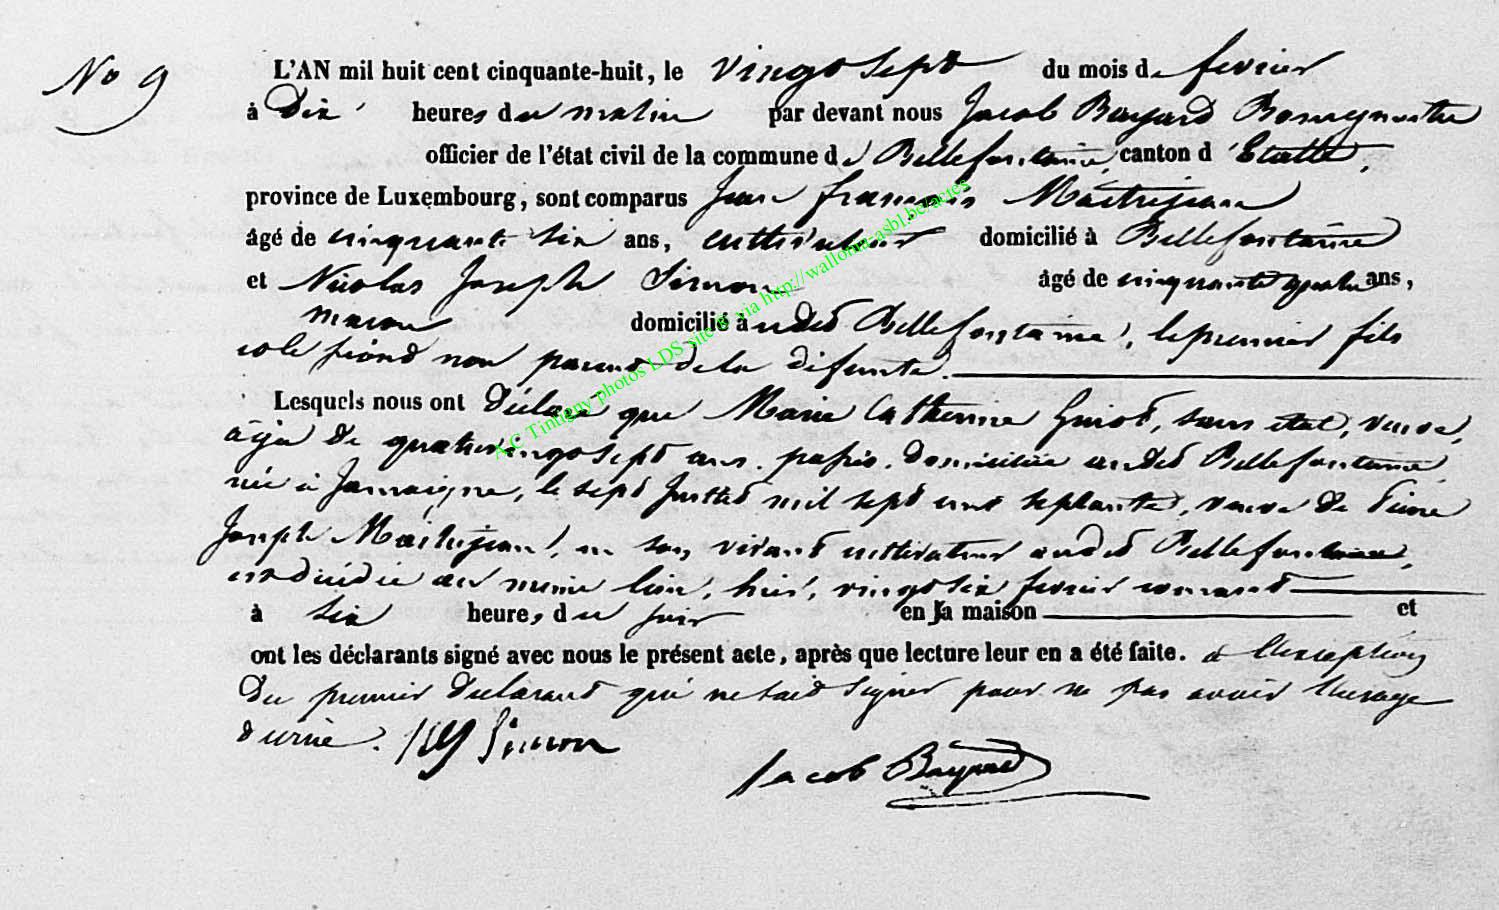 No 9
L'AN mil huit cent cinquante-huit, le vingt sept du mois de fevrier
à Dix heures du matin par devant nous Jacob Bayard Bourgmestre
officier de l'état civil de la commune de Bellefontaine, canton d'Etalle,
province de Luxembourg, sont comparus Jean françois Maitrejean
âgé de cinquante six ans, cultivateur domicilié à Bellefontaine
et Nicolas Joseph Simon âgé de cinquante quatre ans,
macon domicilié à audit Bellefontaine, le premier fils
et le second non parent de la défunte.
Lesquels nous ont déclaré que Marie Catherine Guiot, sans etat, veuve,
agée de quatrevingt sept ans passés, domiciliée audit Bellefontaine
née à Jamoigne, le sept Juillet mil sept cent septante, veuve de Pierre
Joseph Maitrejean, en son vivant cultivateur audit Bellefontaine,
est décédée au meme lieu, hier, vingt six fevrier courant
à six heures du soir en sa maison et
ont les déclarants signé avec nous le présent acte, après que lecture leur en a été faite. à l'exception
du premier déclarant qui ne sait signer pour ne pas avoir l'usage
d'ecrire. NJ Simon
Jacob Bayard
A.C Tintigny photos LDS site & via http://wallonia-asbl.be/actes